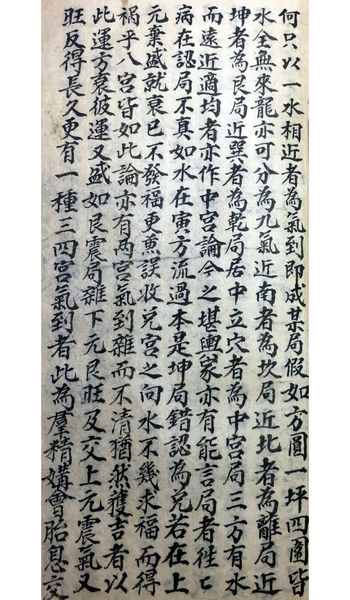 何只以一水相近者為氣到即成某局假如方圓一坪四圍皆
水全無來龍亦可分為九氣近南者為坎局近北者為離局近
坤者為艮局近巽者為乾局居中立穴者為中宮局三方有水
而遠近適均者亦作中宮論今之堪輿家亦有能言局者徃〻
病在認局不真如水在寅方流過本是坤局錯認為兌若在上
元棄盛就衰已不發福更兼誤收兌宮之向水不幾未福而得
禍乎八宮皆如此論亦有兩宮氣到雜而不清猶然獲吉者以
此運方衰彼運又盛如艮震局雜下元艮旺及交上元震氣又
旺反得長久更有一種三四宮氣到者此為羣精媾會胎息交